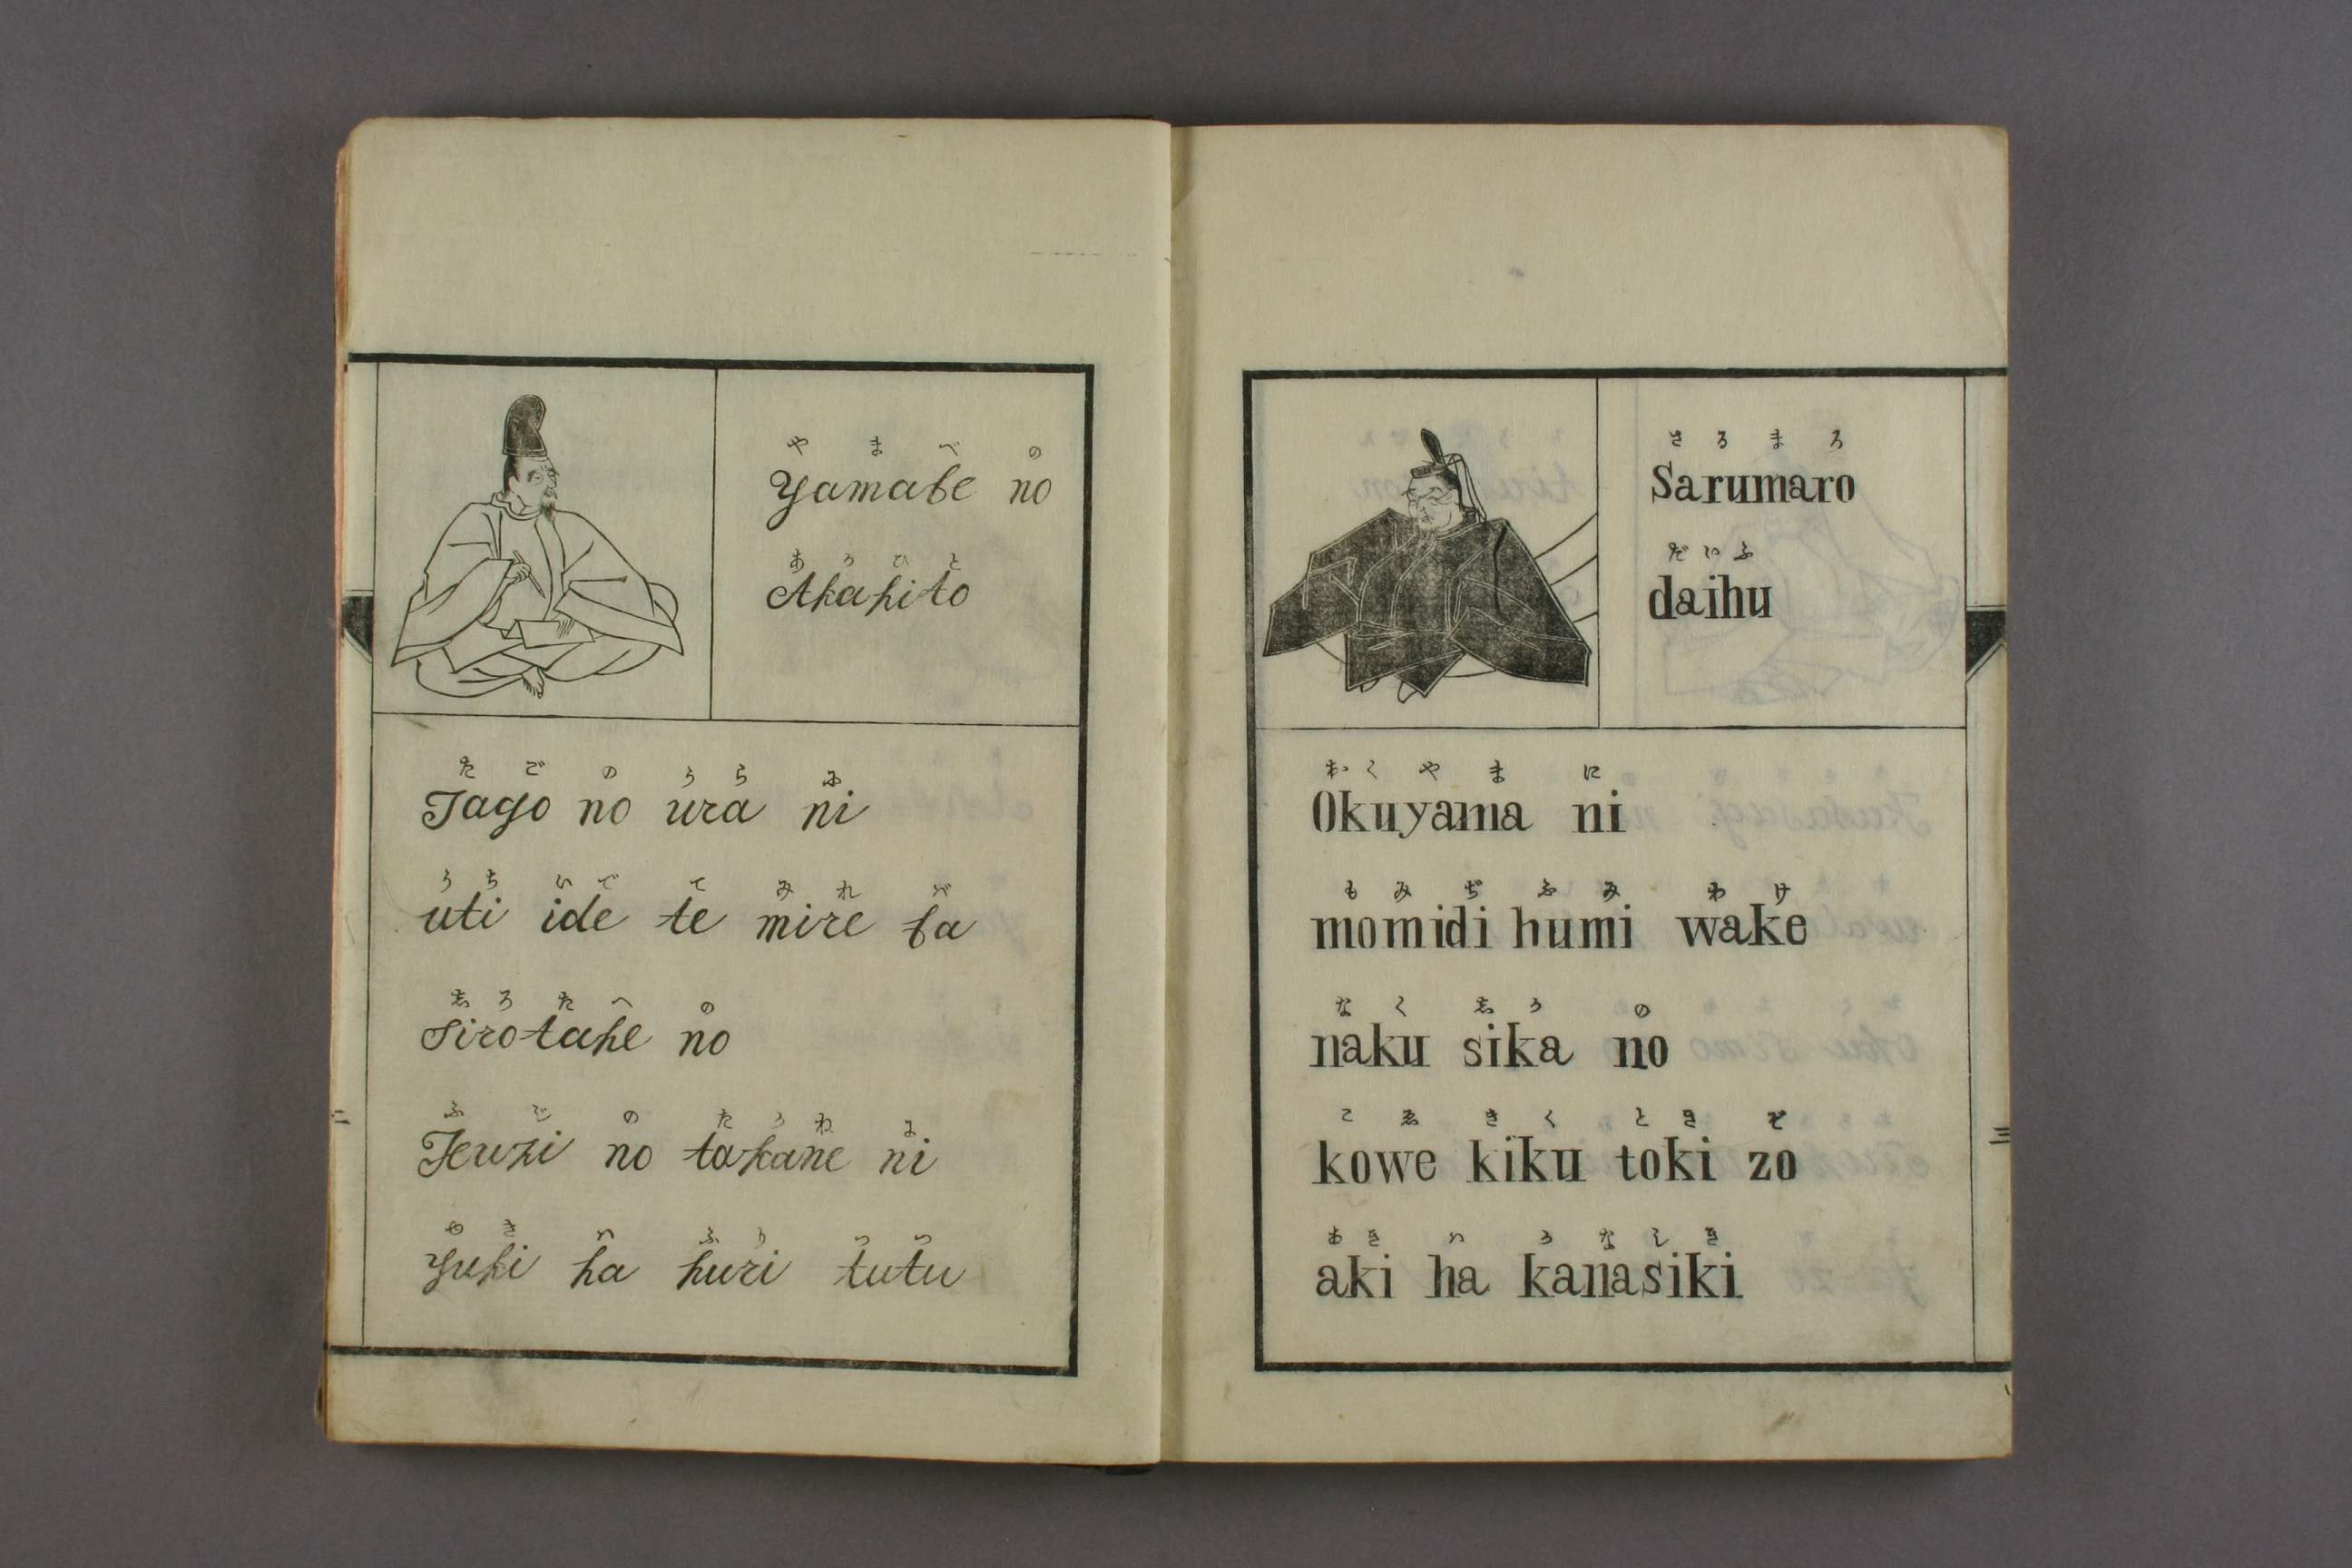 や ま べ の
Yamabe no
あ か ひ と
Akahito
た ご の う ら に
Tago no ura ni
う ち い で て み れ バ
uti ide te mire ba
し ろ た へ の
sirotahe no
ふ じ の た か ね に
Fuzi no takane ni
ゆ き ハ ふ り つ つ
yuki ha huri tutu
二
さ る ま ろ
Sarumaro
だ い ふ
daihu
お く や ま に
Okuyama ni
も み ぢ ふ み わ け
momidi humi wake
な く し か の
naku sika no
こ ゑ き く と き ぞ
kowe kiku toki zo
あ き ハ か な し き
aki ha kanasiki
三